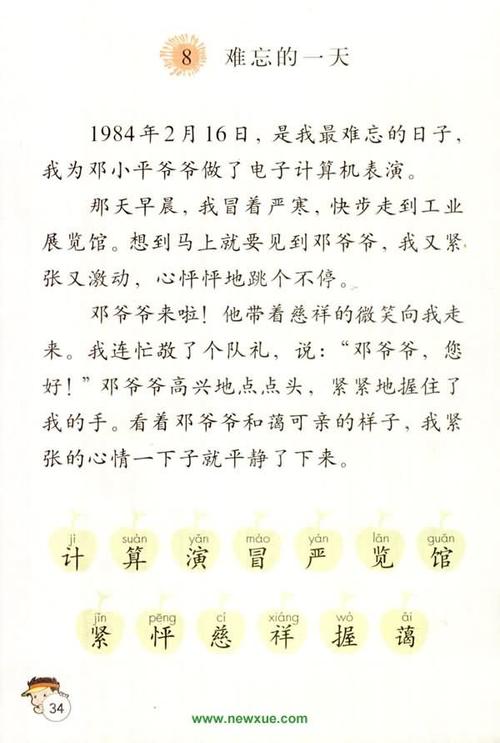 8 难忘的一天
1984年2月16日，是我最难忘的日子，
我为邓小平爷爷做了电子计算机表演。
那天早晨，我冒着严寒，快步走到工业
展览馆。想到马上就要见到邓爷爷，我又紧
张又激动，心怦怦地跳个不停。
邓爷爷来啦！他带着慈祥的微笑向我走
来。我连忙敬了个队礼，说：“邓爷爷，您
好！”邓爷爷高兴地点点头，紧紧地握住了
我的手。看着邓爷爷和蔼可亲的样子，我紧
张的心情一下子就平静了下来。
jì suàn yǎn mào yán lǎn guǎn
计 算 演 冒 严 览 馆
jǐn pēng cí xiáng wò ǎi
紧 怦 慈 祥 握 蔼
34
www.newxue.com